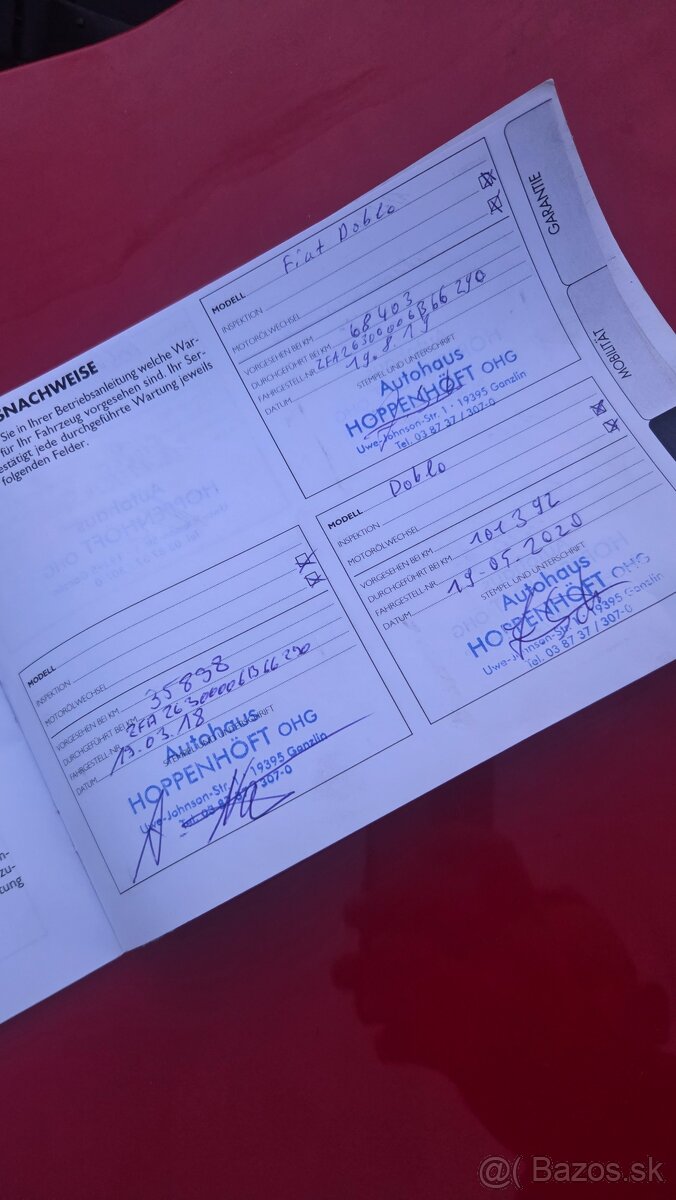 SNACHWEISE
Sie in Ihrer Betriebsanleitung welche War-
für Ihr Fahrzeug vorgesehen sind. Ihr Ser-
estätigt jede durchgeführte Wartung jeweils
folgenden Felder.
MODELL
INSPEKTION
MOTORÖLWECHSEL
VORGESEHEN BEI KM
DURCHGEFÜHRT BEI KM 35898
FAHRGESTELL-NR. ZFA26300006B66290
DATUM 19.03.18
STEMPEL UND UNTERSCHRIFT
Autohaus
HOPPENHÖFT OHG
Uwe-Johnson-Str. 1 · 19395 Ganzlin
Tel. 03 87 37 / 307-0
MODELL Fiat Doblo
INSPEKTION
MOTORÖLWECHSEL
VORGESEHEN BEI KM
DURCHGEFÜHRT BEI KM 68403
FAHRGESTELL-NR. ZFA26300006B66290
DATUM 19.8.19
STEMPEL UND UNTERSCHRIFT
Autohaus
HOPPENHÖFT OHG
Uwe-Johnson-Str. 1 · 19395 Ganzlin
Tel. 03 87 37 / 307-0
MODELL Doblo
INSPEKTION
MOTORÖLWECHSEL
VORGESEHEN BEI KM
DURCHGEFÜHRT BEI KM 101392
FAHRGESTELL-NR.
DATUM 19-05-2020
STEMPEL UND UNTERSCHRIFT
Autohaus
HOPPENHÖFT OHG
Uwe-Johnson-Str. 1 · 19395 Ganzlin
Tel. 03 87 37 / 307-0
GARANTIE
MOBILITÄT
n-
zu-
tung
@( Bazos.sk